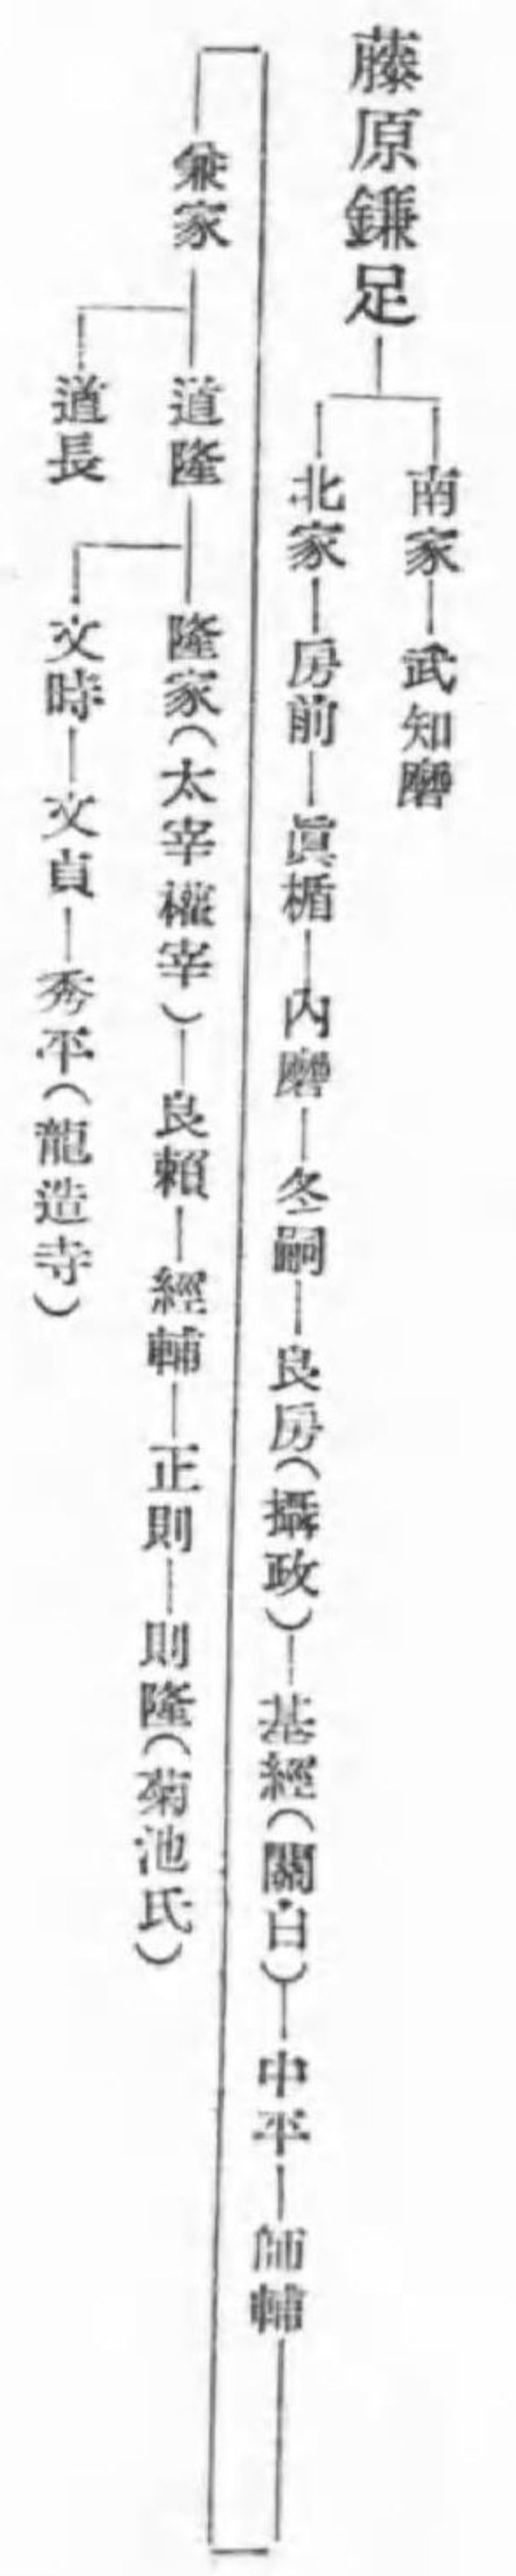 藤原鎌足
南家―武知麿
北家―房前―眞楯―內麿―冬嗣―良房(攝政)―基經(關白)―中平―師輔
兼家―道隆―隆家(太宰權宰)―良賴―經輔―正則―則隆(菊池氏)
道長
文時―文貞―秀平(龍造寺)